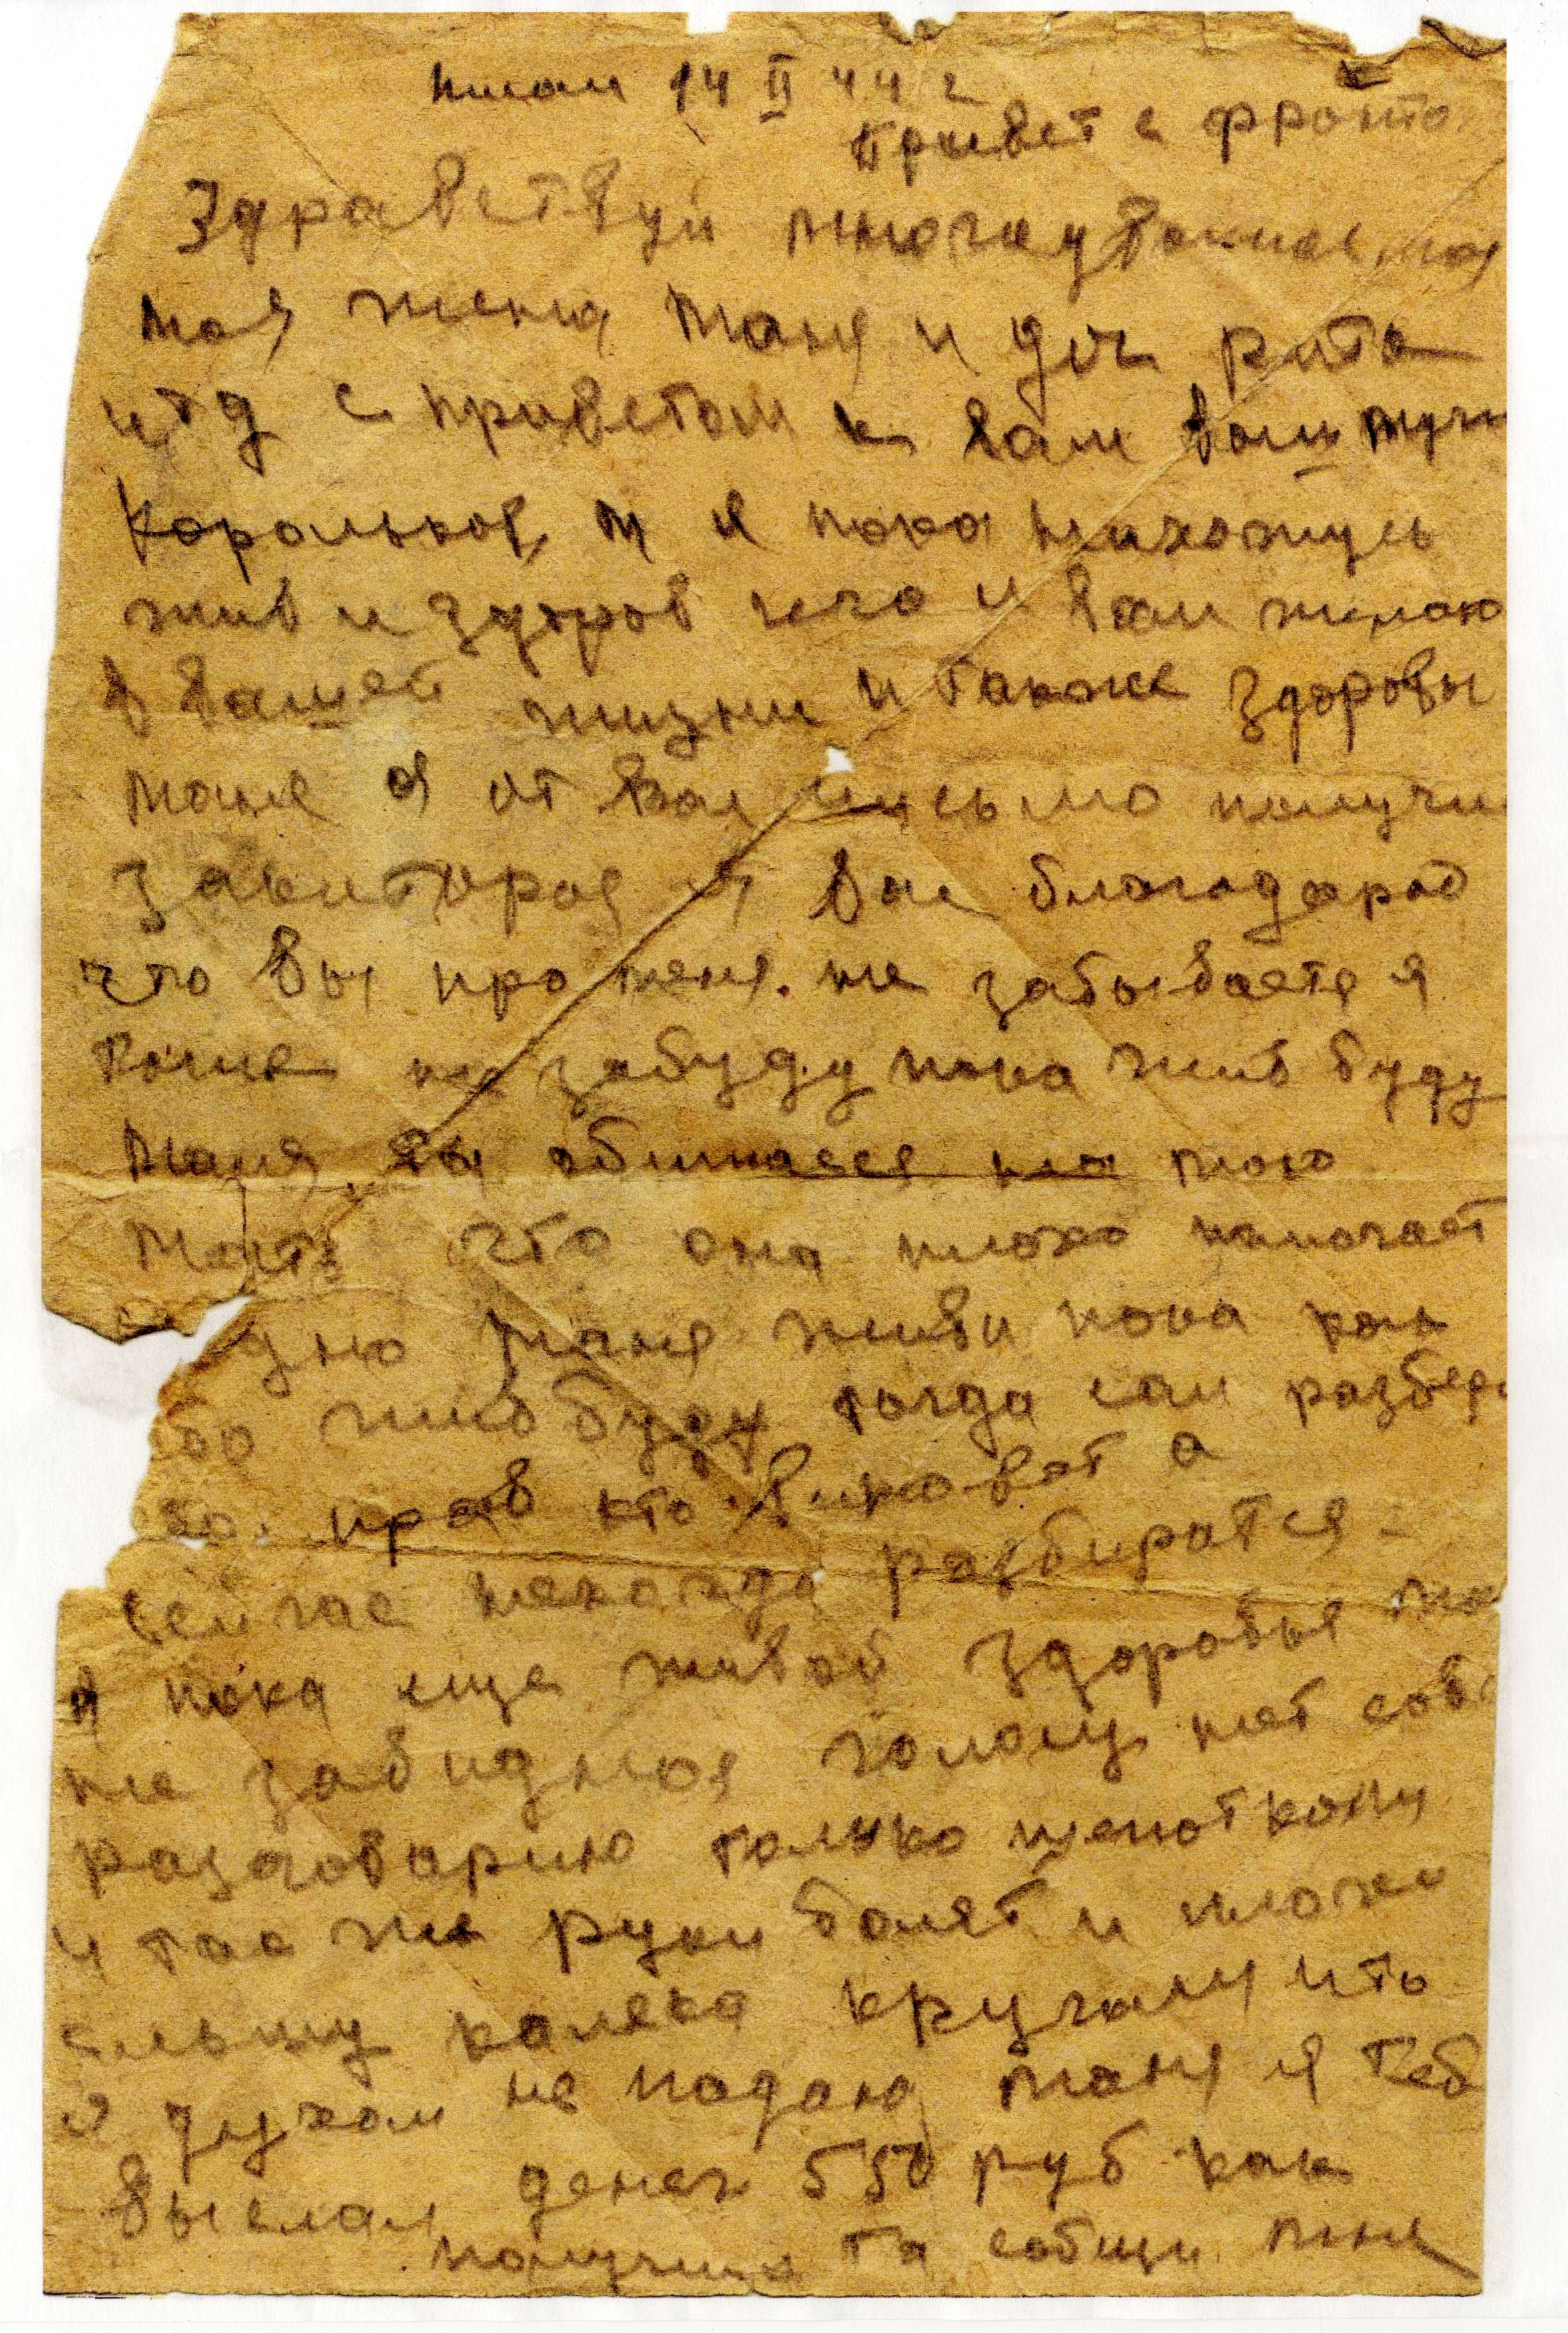 писал 14 II 44 г
Привет с фронто
Здравствуй многоуважаемая
моя жена маня и доч рита
и т д с приветом к вам ваш муж
Корольков м я пока нахожусь
жив и здоров чего и вам желаю
в вашей жизни и также здоровы
маня я от вас письмо получи
за которая я вас благодарю
что вы про меня не забываете я
тоже не забуду пока жив буду
маня ты обижаеся на мою
мать что она плохо помогает
маня живи пока как
жив буду тогда сам разбере
прав кто виноват а
сейчас некогда разбиратся
я пока еще живой здоровья мо
не забидная голосу нет сов
разговорию только шепотком
и так же руки болят и плохо
слышу калека кругом но
я духом не падаю маня я теб
выслал денег 550 руб как
получиш то собщи мне